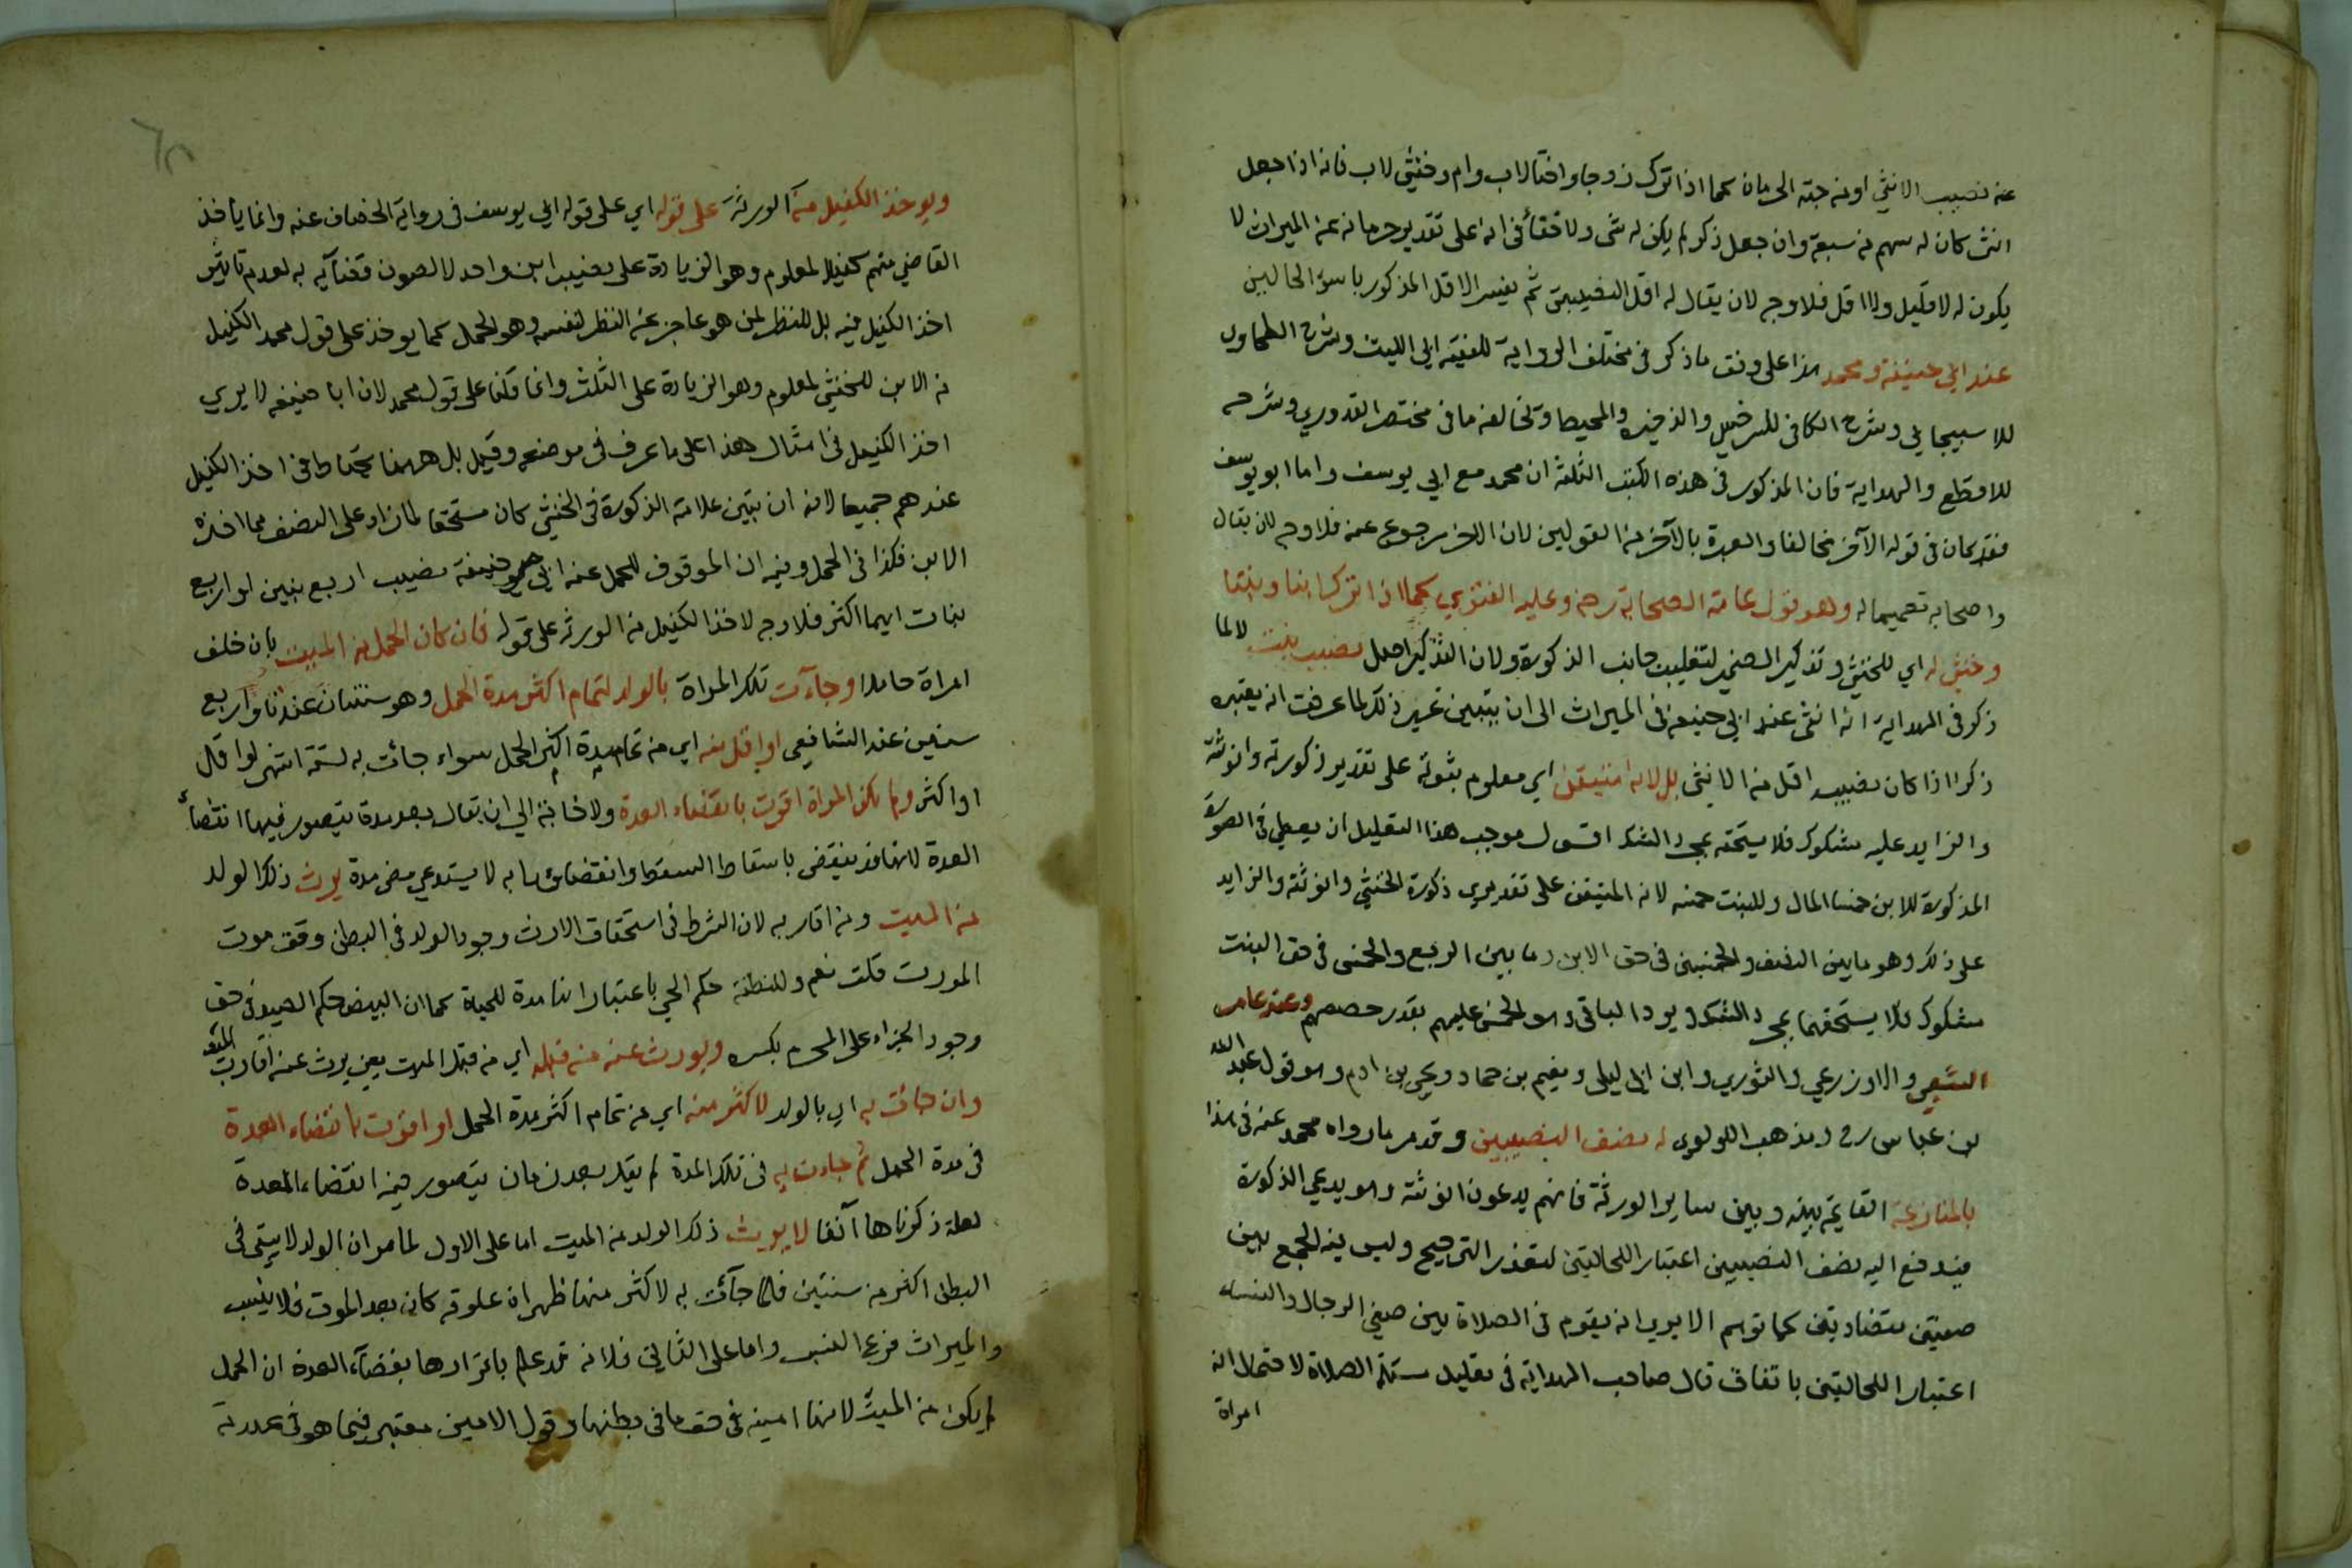 عن نصيب الانثى او من جهة الحرمان كما اذا ترك زوجا واختا لاب وام وخنثى لاب فانه اذا جعل
انثى كان له سهم من سبعة وان جعل ذكرا لم يكن له شئ ولا خفاء في انه على تقدير حرمانه عن الميراث لا
يكون له لا قليل ولا اقل فلا وجه لان يقال له اقل النصيبين ثم تفسير الاقل المذكور باسوء الحالين
عند ابي حنيفة ومحمد هذا على وفق ما ذكر في مختلف الرواية للفقيه ابي الليث وشرح الطحاوي
للاسبيجابي وشرح الكافي للسرخسي والذخيره والمحيط وتخالفه ما في مختصر القدوري وشرحه
للاقطع والهداية فان المذكور في هذه الكتب الثلثة ان محمد مع ابي يوسف واما ابو يوسف
فقد كان في قوله الآخر مخالفا والعبرة بالآخر من القولين لان الآخر رجوع عنه فلا وجه لان يقال
واصحابه تعميما له وهو قول عامة الصحابة رض وعليه الفتوي كما اذا ترك ابنا وبنتا
وخنثى له اي للخنثى وتذكير الضمير لتغليب جانب الذكورة ولان التذكير اصل نصيب بنت لا لما
ذكر في الهداية انه انثى عند ابي حنيفة في الميراث الى ان يتبين غير ذلك لما عرفت انه يعتبره
ذكرا اذا كان نصيبه اقل من الانثى بل لانه متيقن اي معلوم بثبوته على تقدير ذكورته وانوثته
والزايد عليه مشكوك فلا يستحقه بمجرد الشك اقول موجب هذا التعليل ان يعطى في الصورة
المذكورة للابن خمسا المال وللبنت خمسه لانه المتيقن على تقديري ذكورة الخنثى وانوثته والزايد
على ذلك وهو ما بين النصف والخمسين في حق الابن وما بين الربع والخمس في حق البنت
مشكوك فلا يستحقهما بمجرد الشك ويرد الباقي وهو الخمس عليهم بقدر حصصهم وعند عامر
الشعبي والاوزعي والثوري وابن ابي ليلى ونعيم بن حماد ويحيى بن ادم وهو قول عبد الله
بن عباس رض ومذهب اللولوي له نصف النصيبين وقد مر ما رواه محمد عنه في هذا
بالمنازعة القايمة بينه وبين ساير الورثة فانهم يدعون انوثته وهو يدعي الذكورة
فيدفع اليه نصف النصيبين اعتبارا للحالتين لتعذر الترجيح وليس فيه الجمع بين
صفتين متضادتين كما توهم الا يري انه يقوم في الصلاة بين صفي الرجال والنساء
اعتبارا للحالتين باتفاق قال صاحب الهداية في تعليل مسئلة الصلاة لاحتمال انه
امراة
ويوخذ الكفيل من الورثة على قوله اي على قول ابي يوسف في رواية الخصاف عنه وانما ياخذ
القاضي منهم كفيلا لمعلوم وهو الزيادة على نصيب ابن واحد لا لصون قضآيه به لعدم تاثير
اخذ الكفيل فيه بل للنظر لمن هو عاجز عن النظر لنفسه وهو الحمل كما يوخذ على قول محمد الكفيل
من الابن للخنثى لمعلوم وهو الزيادة على الثلث وانما قلنا على قول محمد لان ابا حنيفه لا يري
اخذ الكفيل في امثال هذا على ما عرف في موضعه وقيل بل ههنا يحتاط في اخذ الكفيل
عندهم جميعا لانه ان تبين علامة الذكورة في الخنثى كان مستحقا لما زاد على النصف مما اخذه
الابن فكذا في الحمل وفيه ان الموقوف للحمل عند ابي حنيفة نصيب اربع بنين او اربع
بنات ايهما اكثر فلا وجه لاخذ الكفيل من الورثه على قوله فان كان الحمل من الميت بان خلف
امراة حاملا وجآءت تلك المراة بالولد لتمام اكثر مدة الحمل وهو سنتان عندنا واربع
سنين عند الشافعي او اقل منه اي من تمام مدة اكثر الحمل سواء جاءت به لستة اشهر او اقل
او اكثر ولم تكن المراة اقرت بانقضاء العدة ولا حاجة الي ان يقال بعد مدة يتصور فيها انقضاء
العدة لانها قد ينقضي باسقاط السقط وانقضاؤها به لا يستدعي مضى مدة يرث ذلك الولد
من الميت ومن اقاربه لان الشرط في استحقاق الارث وجود الولد في البطن وقت موت
المورث قلت نعم وللنطفة حكم الحي باعتبار انها مدة للحياة كما ان للبيض حكم الصيد في حق
وجود الجزاء على المحرم بكسره ويورث عنه من قبله اي من قبل الميت يعني يرث عنه اقارب الميت
وان جائت به اي بالولد لاكثر منه اي من تمام اكثر مدة الحمل او اقرت بانقضاء العدة
في مدة الحمل ثم جاءت به في تلك المدة لم يقل بعد زمان يتصور فيه انقضاء العدة
لعلة ذكرناها آنفا لا يورث ذلك الولد من الميت اما على الاول لما مر ان الولد لا يبقى في
البطن اكثر من سنتين فلما جآئت به لاكثر منها ظهر ان علوقه كان بعد الموت فلا ينسب
والميراث فرع النسب واما على الثاني فلانه قد علم باقرارها بقضآء العدة ان الحمل
لم يكن من الميت لانها امينه في حق ما في بطنها وقول الامين معتبر فيما هو في عهدته